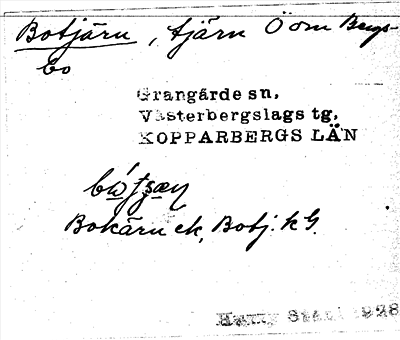 Botjärn, tjärn Ö om Bergs-
bo
Grangärde sn,
Västerbergslags tg,
KOPPARBERGS LÄN
Bokärn ek, Botj. k G.
Harry Ståhl 1928